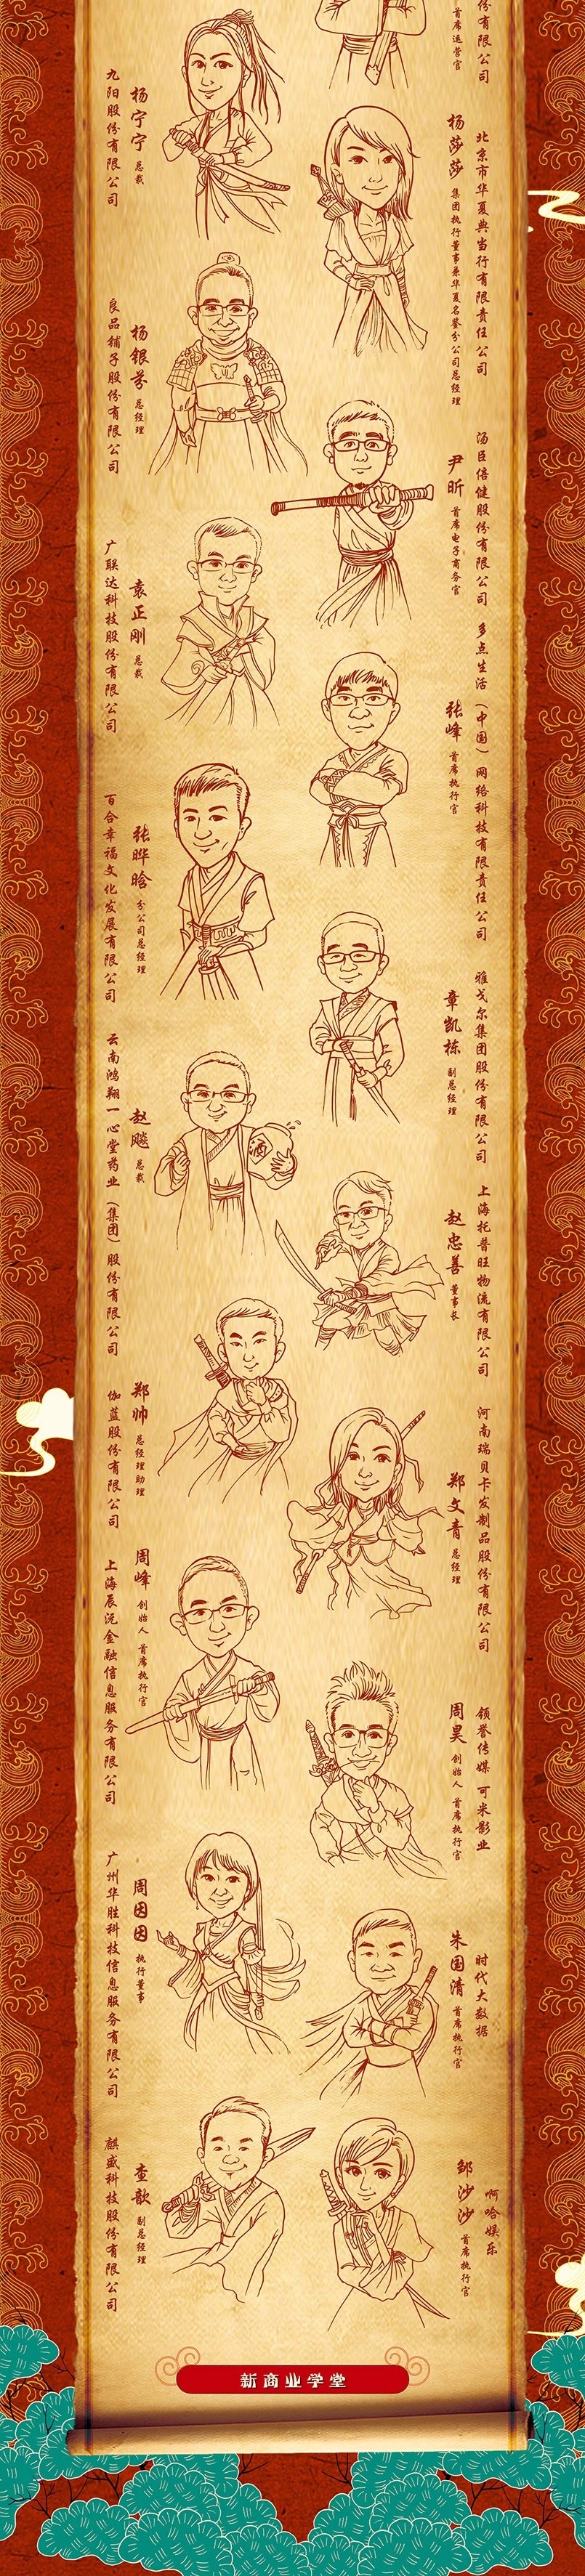 份有限公司
首席运营官
九阳股份有限公司
杨宁宁 总裁
北京市华夏典当行有限责任公司
杨莎莎 集团执行董事兼华夏名鉴分公司总经理
良品铺子股份有限公司
杨银芬 总经理
汤臣倍健股份有限公司
尹昕 首席电子商务官
广联达科技股份有限公司
袁正刚 总裁
多点生活（中国）网络科技有限责任公司
张峰 首席执行官
百合幸福文化发展有限公司
张晔晗 分公司总经理
雅戈尔集团股份有限公司
章凯栋 副总经理
云南鸿翔一心堂药业（集团）股份有限公司
赵飚 总裁
酒
上海托普旺物流有限公司
赵忠善 董事长
伽蓝股份有限公司
郑帅 总经理助理
河南瑞贝卡发制品股份有限公司
郑文青 总经理
上海辰沅金融信息服务有限公司
周峰 创始人 首席执行官
领誉传媒 可米影业
周昊 创始人 首席执行官
广州华胜科技信息服务有限公司
周因因 执行董事
时代大数据
朱国清 首席执行官
麒盛科技股份有限公司
查歆 副总经理
啊哈娱乐
邹沙沙 首席执行官
新商业学堂